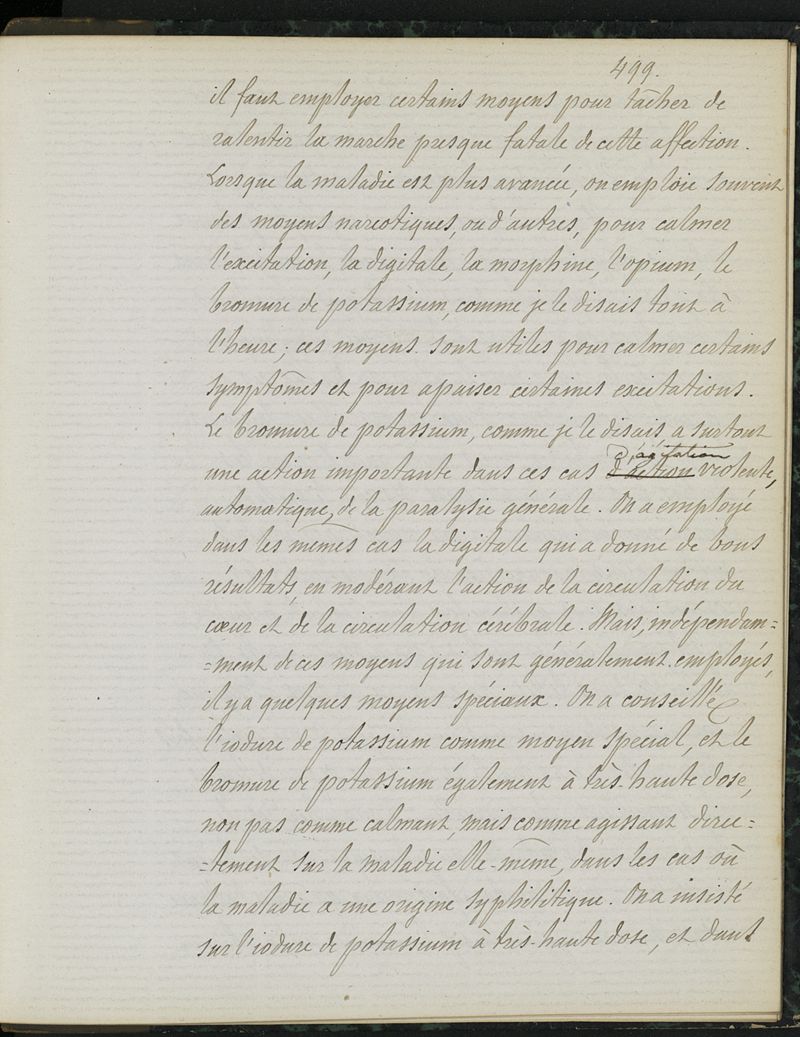 499.
il faut employer certains moyens pour tâcher de
ralentir la marche presque fatale de cette affection.
Lorsque la maladie est plus avancée, on emploie souvent
des moyens narcotiques, ou d'autres, pour calmer
l'excitation, la digitale, la morphine, l'opium, le
bromure de potassium, comme je le disais tout à
l'heure; ces moyens sont utiles pour calmer certains
symptômes et pour apaiser certaines excitations.
Le bromure de potassium, comme je le disais a surtout
d'agitation
une action importante dans ces cas d'action violente,
automatique, de la paralysie générale. On a employé
dans les mêmes cas la digitale qui a donné de bons
résultats, en modérant l'action de la circulation du
cœur et de la circulation cérébrale. Mais, indépendam=
=ment de ces moyens qui sont généralement employés,
il y a quelques moyens spéciaux. On a conseillé
l'iodure de potassium comme moyen spécial, et le
bromure de potassium également à très-haute dose,
non pas comme calmant, mais comme agissant direc=
=tement sur la maladie elle-même, dans les cas où
la maladie a une origine syphilitique. On a insisté
sur l'iodure de potassium à très-haute dose, et dans